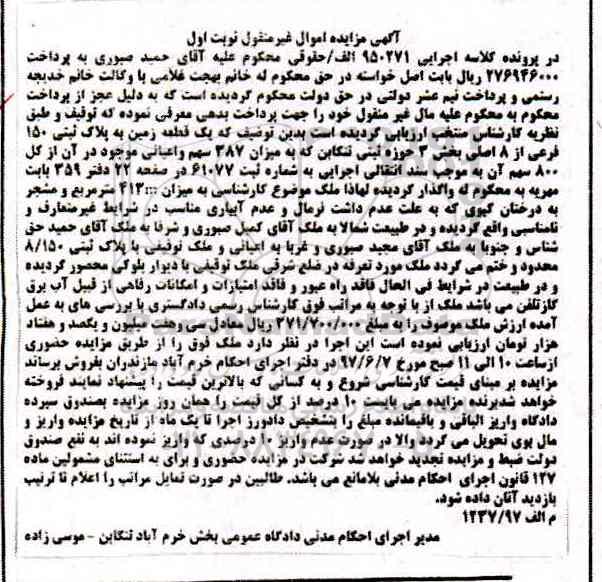 آگهی مزایده اموال غیرمنقول نوبت اول
در پرونده کلاسه اجرایی ۹۵۰۲۷۱ الف/حقوقی محکوم علیه آقای حمید صبوری به پرداخت
۲۷۶۹۴۶۰۰۰ ریال بابت اصل خواسته در حق محکوم له خانم بهجت غلامی با وکالت خانم خدیجه
رستمی و پرداخت نیم عشر دولتی در حق دولت محکوم گردیده است که به دلیل عجز از پرداخت
محکوم به محکوم علیه مال غیر منقول خود را جهت پرداخت بدهی معرفی نموده که توقیف و طبق
نظریه کارشناس منتخب ارزیابی گردیده است بدین توصیف که یک قطعه زمین به پلاک ثبتی ۱۵۰
فرعی از ۸ اصلی بخش ۳ حوزه ثبتی تنکابن که به میزان ۳۸۷ سهم واعیانی موجود در آن از کل
۸۰۰ سهم آن به موجب سند انتقالی اجرایی به شماره ثبت ۶۱۰۷۷ در صفحه ۲۲ دفتر ۳۵۹ بابت
مهریه به محکوم له واگذار گردیده لهاذا ملک موضوع کارشناسی به میزان ۴۱۳ مترمربع و مشجر
به درختان کیوی که به علت عدم داشت نرمال و عدم آبیاری مناسب در شرایط غیرمتعارف و
نامناسبی واقع گردیده و در طبیعت شمالا به ملک آقای کمیل صبوری و شرقا به ملک آقای حمید حق
شناس و جنوبا به ملک آقای مجید صبوری و غربا به اعیانی و ملک توقیفی با پلاک ثبتی ۸/۱۵۰
محدود و ختم می گردد ملک مورد تعرفه در ضلع شرقی ملک توقیفی با دیوار بلوکی محصور گردیده
و در طبیعت در شرایط فی الحال فاقد راه عبور و فاقد امتیازات و امکانات رفاهی از قبیل آب برق
گازتلفن می باشد ملک از با توجه به مراتب فوق کارشناس رسمی دادگستری با بررسی های به عمل
آمده ارزش ملک موصوف را به مبلغ ۳۷۱/۷۰۰/۰۰۰ ریال معادل سی وهفت میلیون و یکصد و هفتاد
هزار تومان ارزیابی نموده است این اجرا در نظر دارد ملک فوق را از طریق مزایده حضوری
ازساعت ۱۰ الی ۱۱ صبح مورخ ۹۷/۶/۷ در دفتر اجرای احکام خرم آباد مازندران بفروش برساند
مزایده بر مبنای قیمت کارشناسی شروع و به کسانی که بالاترین قیمت را پیشنهاد نمایند فروخته
خواهد شدبرنده مزایده می بایست ۱۰ درصد از کل قیمت را همان روز مزایده بصندوق سپرده
دادگاه واریز الباقی و باقیمانده مبلغ را بتشخیص دادورز اجرا تا یک ماه از تاریخ مزایده واریز و
مال بوی تحویل می گردد والا در صورت عدم واریز ۱۰ درصدی که واریز نموده اند به نفع صندوق
دولت ضبط و مزایده تجدید خواهد شد شرکت در مزایده حضوری و برای به استثنای مشمولین ماده
۱۲۷ قانون اجرای احکام مدنی بلامانع می باشد. طالبین در صورت تمایل مراتب را اعلام تا ترتیب
بازدید آنان داده شود.
م الف ۱۲۳۷/۹۷
مدیر اجرای احکام مدنی دادگاه عمومی بخش خرم آباد تنکابن - موسی زاده